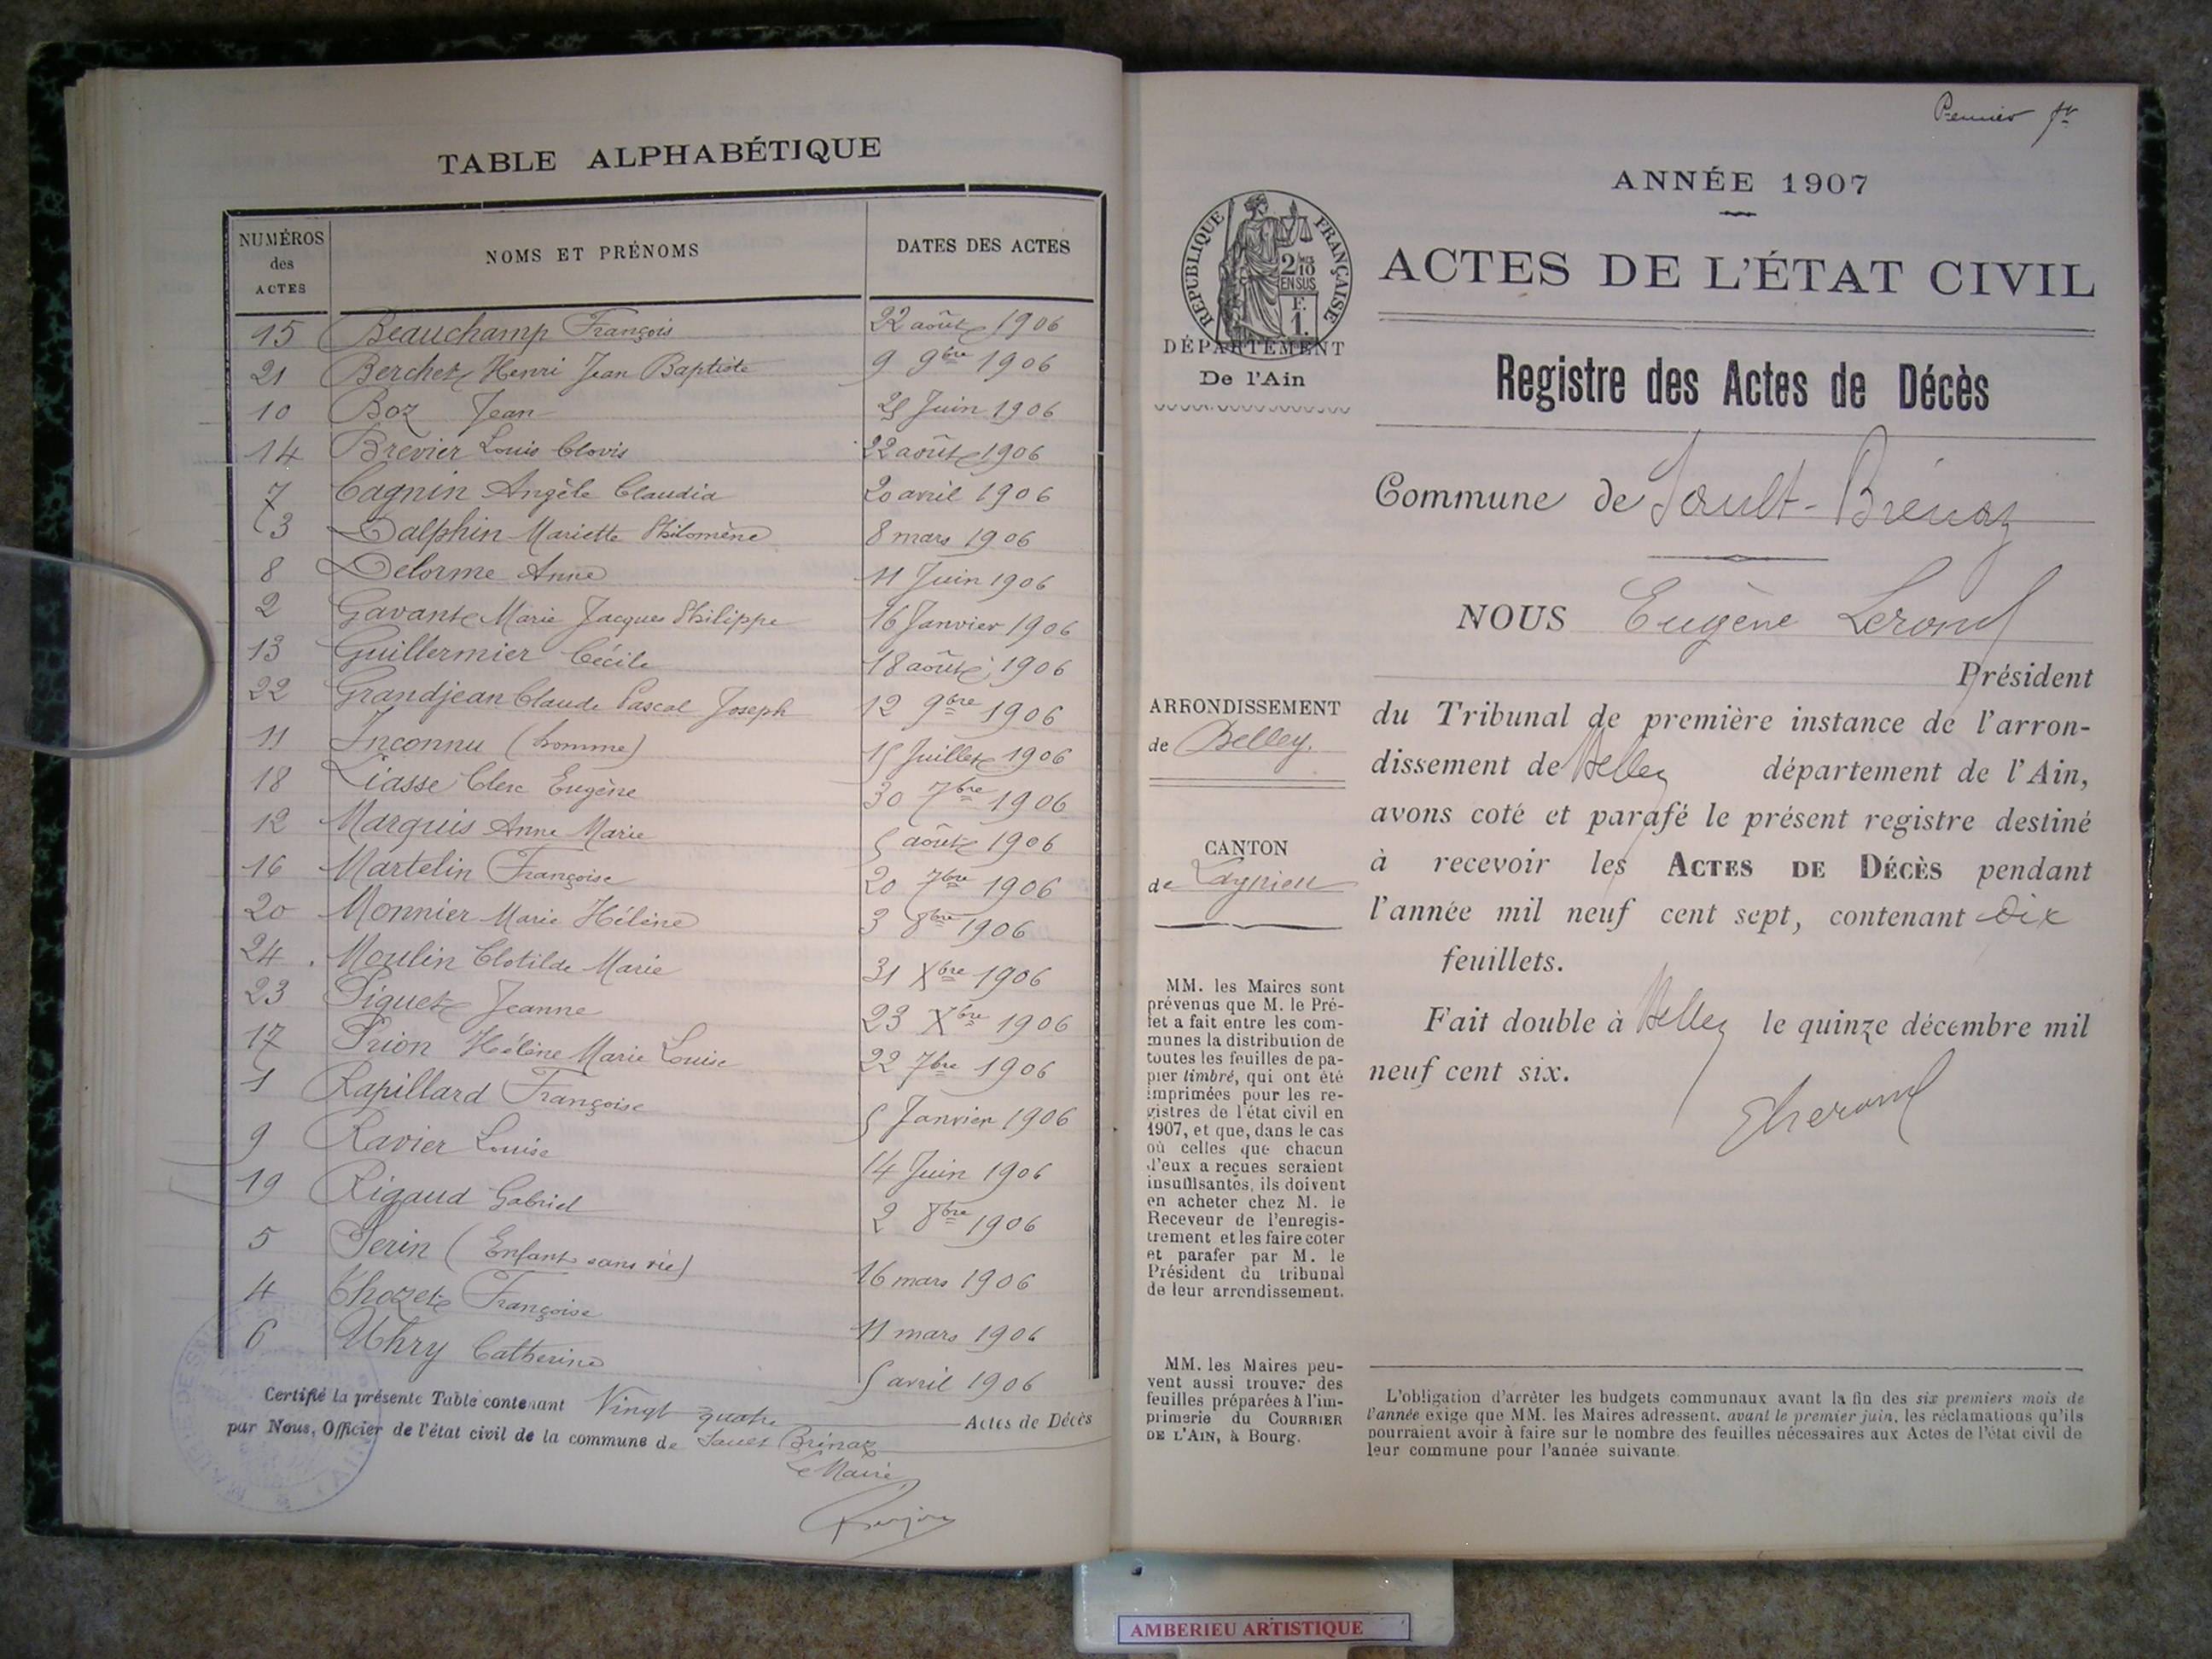 TABLE ALPHABÉTIQUE
NUMÉROS des ACTES NOMS ET PRÉNOMS DATES DES ACTES
15 Beauchamp François 22 août 1906
21 Berchet Henri Jean Baptiste 9 9bre 1906
10 Boz Jean 25 Juin 1906
14 Brevier Louis Clovis 22 août 1906
7 Cagnin Angèle Claudia 20 avril 1906
3 Dalphin Mariette Philomène 8 mars 1906
8 Delorme Anne 11 Juin 1906
2 Gavant Marie Jacques Philippe 16 Janvier 1906
13 Guillermier Cécile 18 août 1906
22 Grandjean Claude Pascal Joseph 12 9bre 1906
11 Inconnu (homme) 15 Juillet 1906
18 Liasse Clerc Eugène 30 7bre 1906
12 Marquis Anne Marie 5 août 1906
16 Martelin Françoise 20 7bre 1906
20 Monnier Marie Hélène 3 8bre 1906
24 Moulin Clotilde Marie 31 Xbre 1906
23 Piquet Jeanne 23 Xbre 1906
17 Prion Hélène Marie Louise 22 7bre 1906
1 Rapillard Françoise 5 Janvier 1906
9 Ravier Louise 14 Juin 1906
19 Rigaud Gabriel 2 8bre 1906
5 Serin (Enfant sans vie) 16 mars 1906
4 Thozet Françoise 11 mars 1906
6 Uhry Catherine 5 avril 1906
Certifié la présente Table contenant Vingt quatre Actes de Décès
par Nous, Officier de l'état civil de la commune de Sault Brénaz
Le Maire
Premier
ANNÉE 1907
RÉPUBLIQUE FRANÇAISE
2/10 EN SUS
F. 1.
DÉPARTEMENT
De l'Ain
ACTES DE L'ÉTAT CIVIL
Registre des Actes de Décès
Commune de Sault-Brénaz
NOUS Eugène Lerond
Président
du Tribunal de première instance de l'arron-
dissement de Belley département de l'Ain,
avons coté et parafé le présent registre destiné
à recevoir les ACTES DE DÉCÈS pendant
l'année mil neuf cent sept, contenant dix
feuillets.
Fait double à Belley le quinze décembre mil
neuf cent six.
ELerond
ARRONDISSEMENT
de Belley.
CANTON
de Lagnieu
MM. les Maires sont
prévenus que M. le Pré-
fet a fait entre les com-
munes la distribution de
toutes les feuilles de pa-
pier timbré, qui ont été
imprimées pour les re-
gistres de l'état civil en
1907, et que, dans le cas
où celles que chacun
d'eux a reçues seraient
insuffisantes, ils doivent
en acheter chez M. le
Receveur de l'enregis-
trement et les faire coter
et parafer par M. le
Président du tribunal
de leur arrondissement.
MM. les Maires peu-
vent aussi trouver des
feuilles préparées à l'im-
primerie du COURRIER
DE L'AIN, à Bourg.
L'obligation d'arrêter les budgets communaux avant la fin des six premiers mois de
l'année exige que MM. les Maires adressent, avant le premier juin, les réclamations qu'ils
pourraient avoir à faire sur le nombre des feuilles nécessaires aux Actes de l'état civil de
leur commune pour l'année suivante.
AMBERIEU ARTISTIQUE